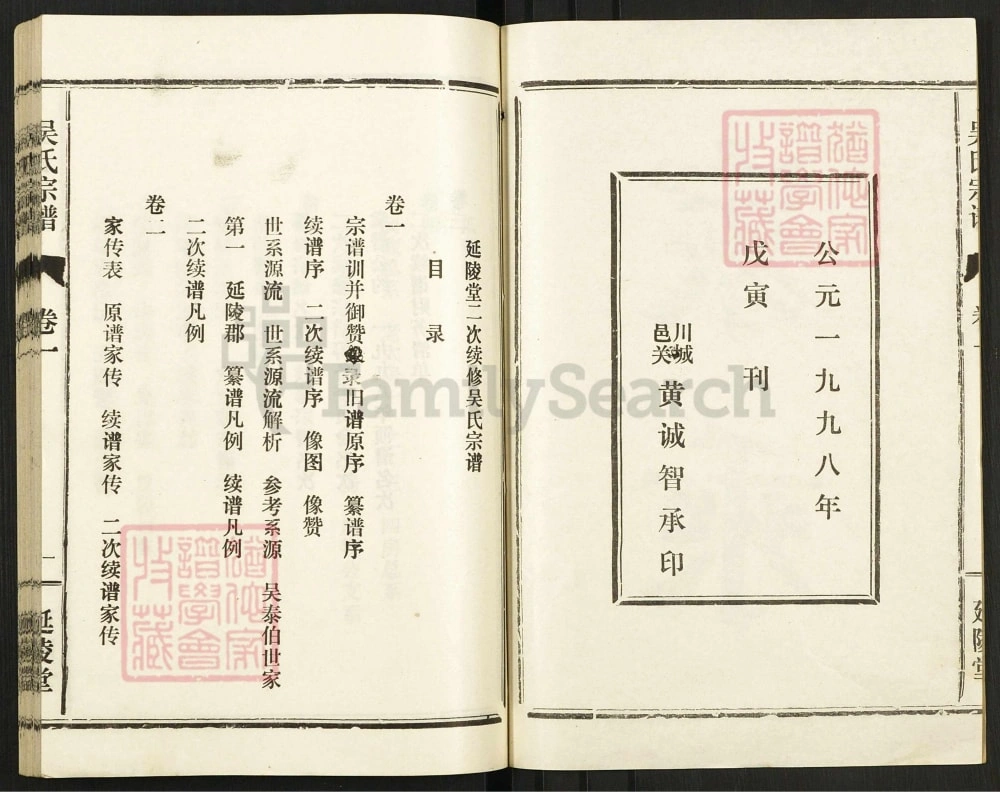 吴氏宗谱
延陵堂
公元一九九八年
戊寅刊
川城
邑关
黄诚智承印
延陵堂二次续修吴氏宗谱
目录
卷一
宗谱训并御赞 录旧谱原序 纂谱序
续谱序 二次续谱序 像图 像赞
世系源流 世系源流解析 参考系源 吴泰伯世家
第一 延陵郡 纂谱凡例 续谱凡例
二次续谱凡例
卷二
家传表 原谱家传 续谱家传 二次续谱家传
吴氏宗谱
卷一
一
延陵堂
谱学会
收藏
谱学会
收藏
FamilySearch